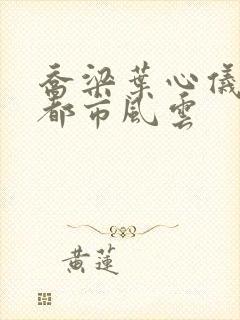 喬梁葉心儀
都市風雲
黃蓮